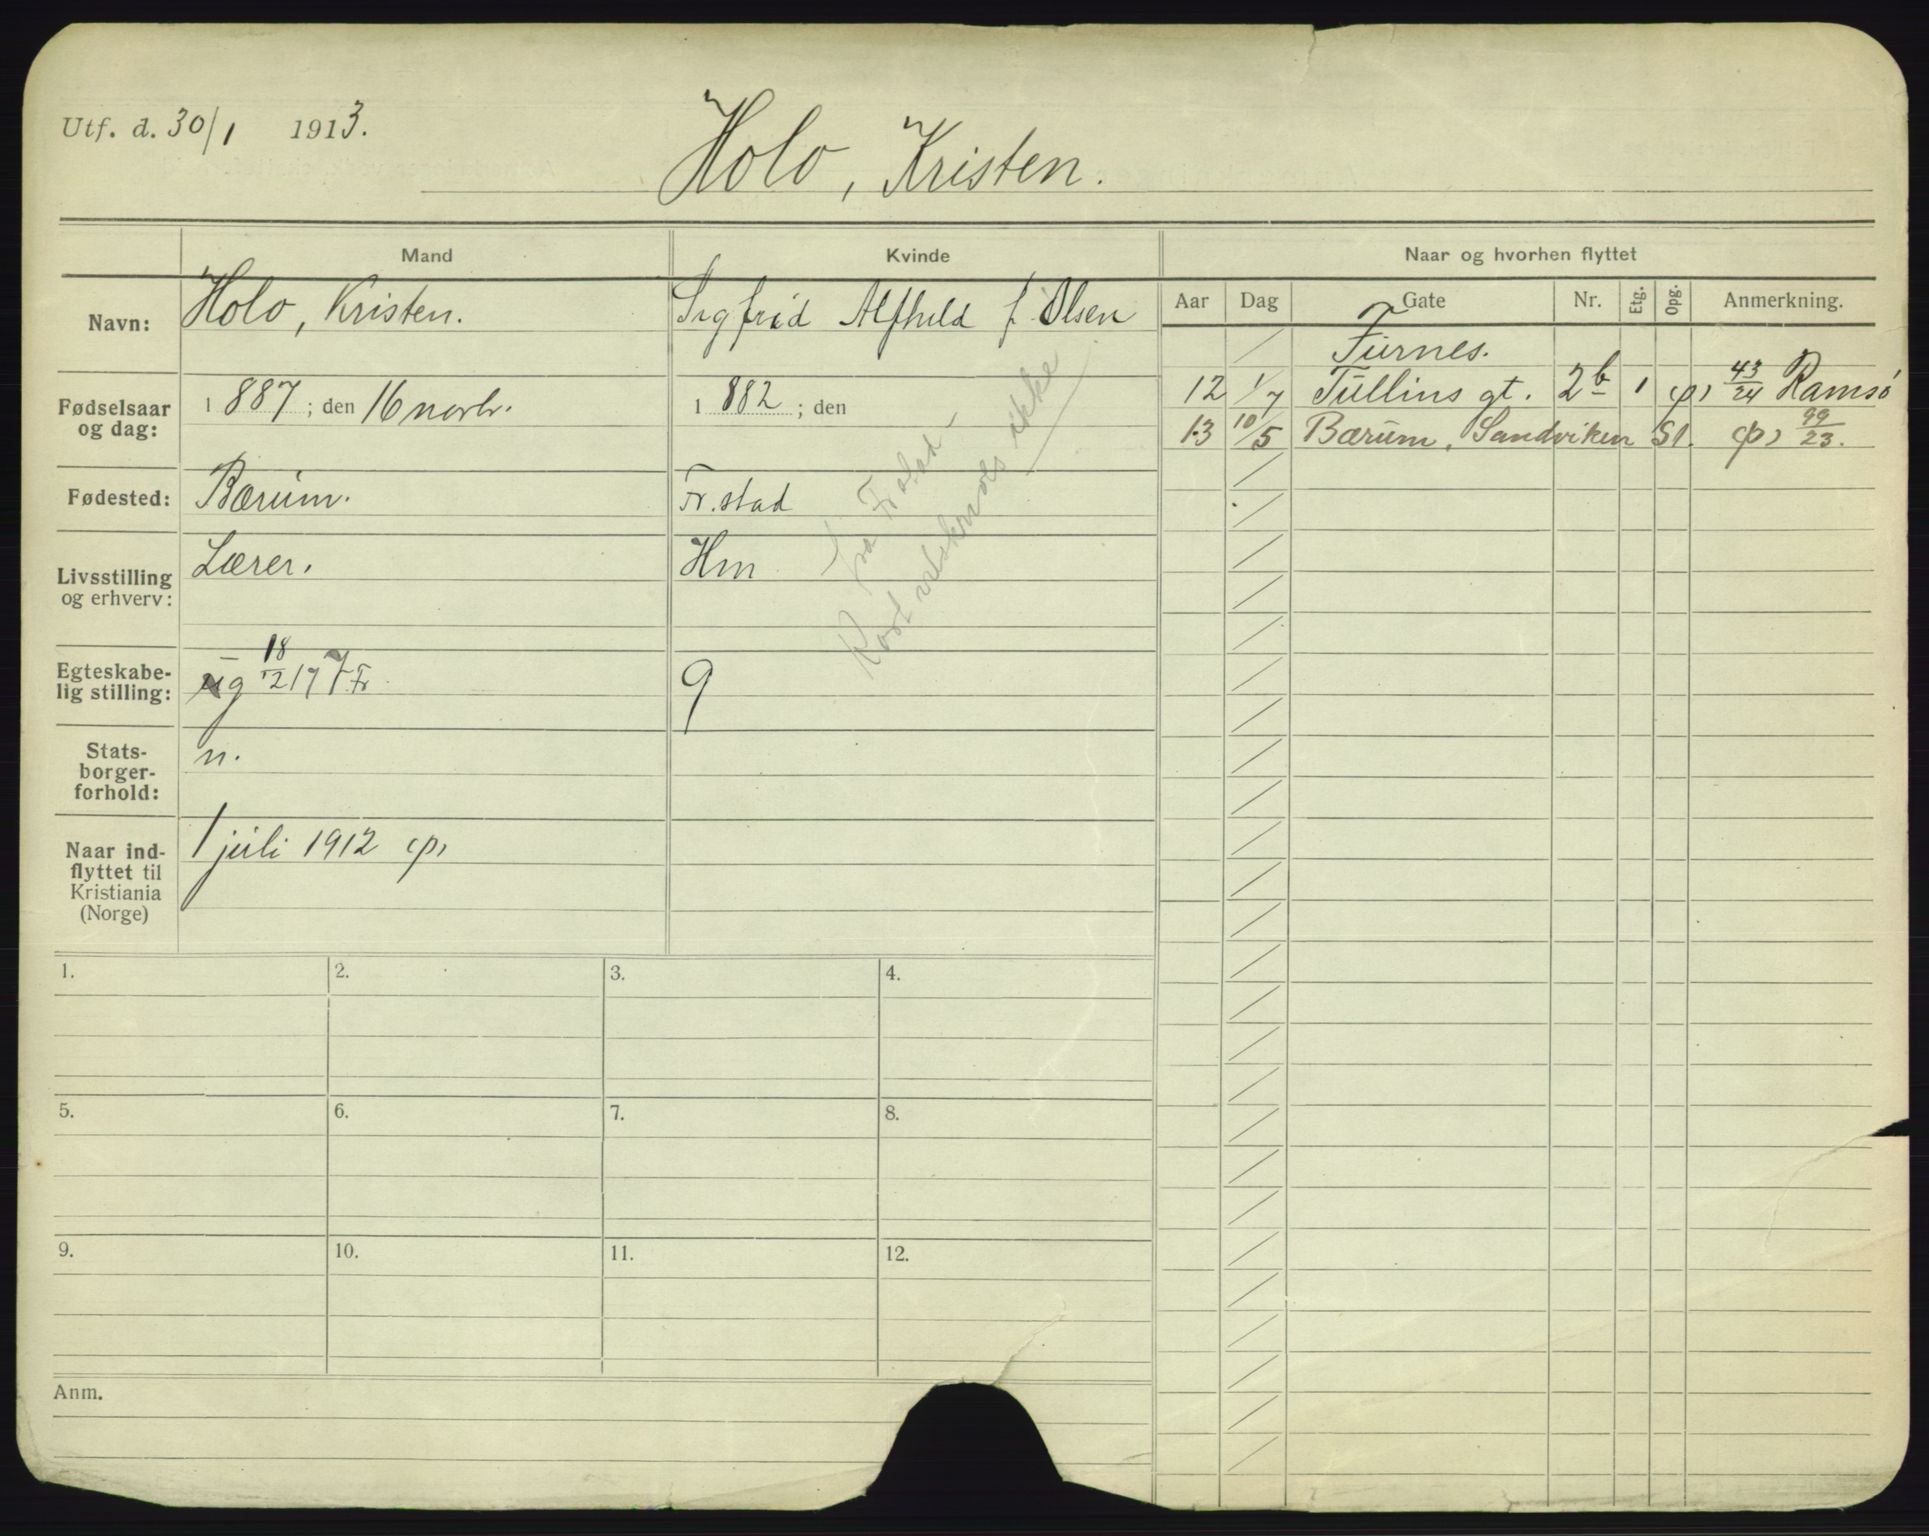 Utf. d. 30/1 1913.
Holo, Kristen.
Mand
Kvinde
Naar og hvorhen flyttet
Navn:
Holo, Kristen.
Sigfrid Alfhild f. Olsen
Aar Dag Gate Nr. Etg. Opg. Anmerkning.
Furnes.
Fødselsaar og dag:
1887; den 16 novbr.
1882; den
12 1/7 Tullins gt. 2b 1 (p) 43/24 Ramsö
13 10/5 Bærum, Sandviken St. (p) 99/23.
Fødested:
Bærum.
Fr.stad
Livsstilling og erhverv:
Lærer.
Hm
fra Frstad
Kort utskrives ikke
Egteskabelig stilling:
ug 18/2 17 Fr
g
Statsborgerforhold:
n.
Naar indflyttet til Kristiania (Norge)
1 juli 1912 (p)
1. 2. 3. 4.
5. 6. 7. 8.
9. 10. 11. 12.
Anm.